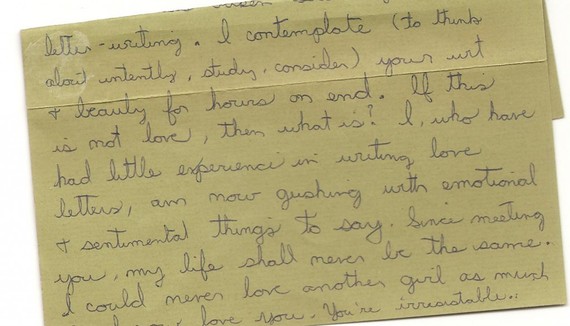 letter-writing. I contemplate (to think
about intently, study, consider) your wit
+ beauty for hours on end. If this
is not love, then what is? I, who have
had little experience in writing love
letters, am now gushing with emotional
+ sentimental things to say. Since meeting
you, my life shall never be the same.
I could never love another girl as much
love you. You're irresistable..